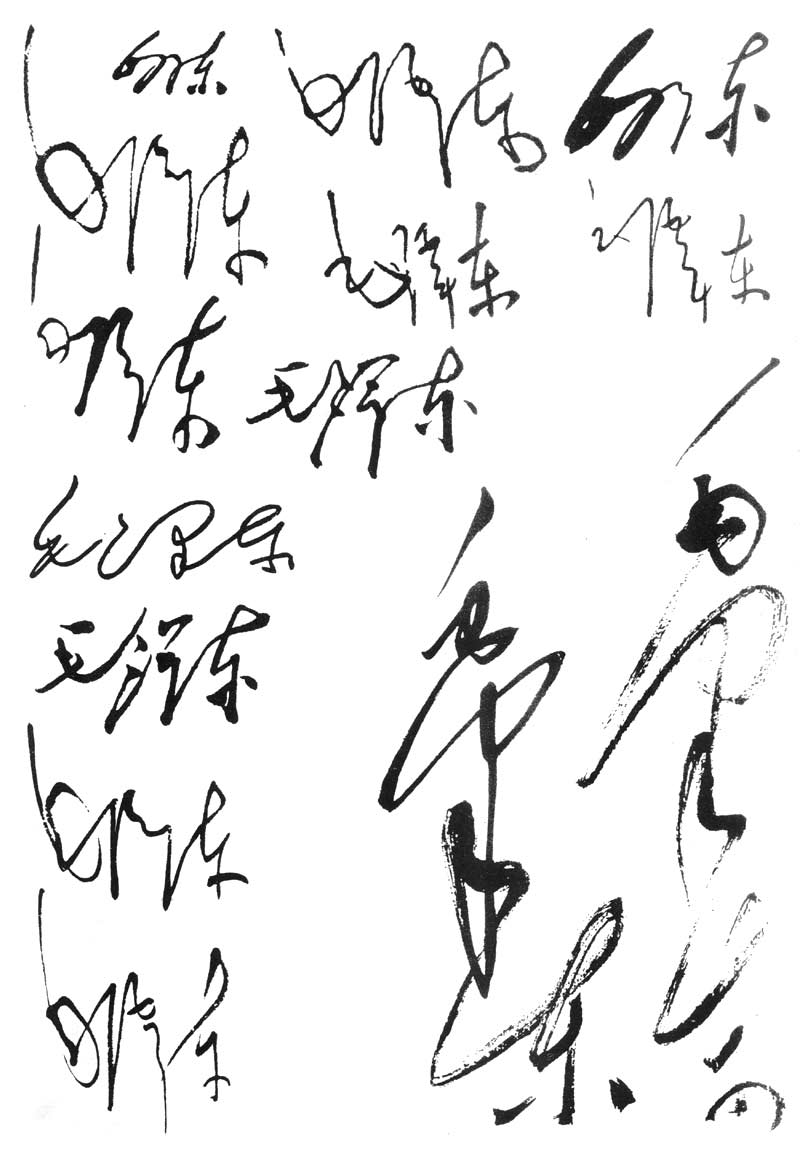 毛泽东
毛泽东
毛泽东
毛泽东
毛泽东
毛泽东
毛泽东
毛泽东
毛泽东
毛泽东
毛泽东
毛泽东
毛泽东
毛泽东